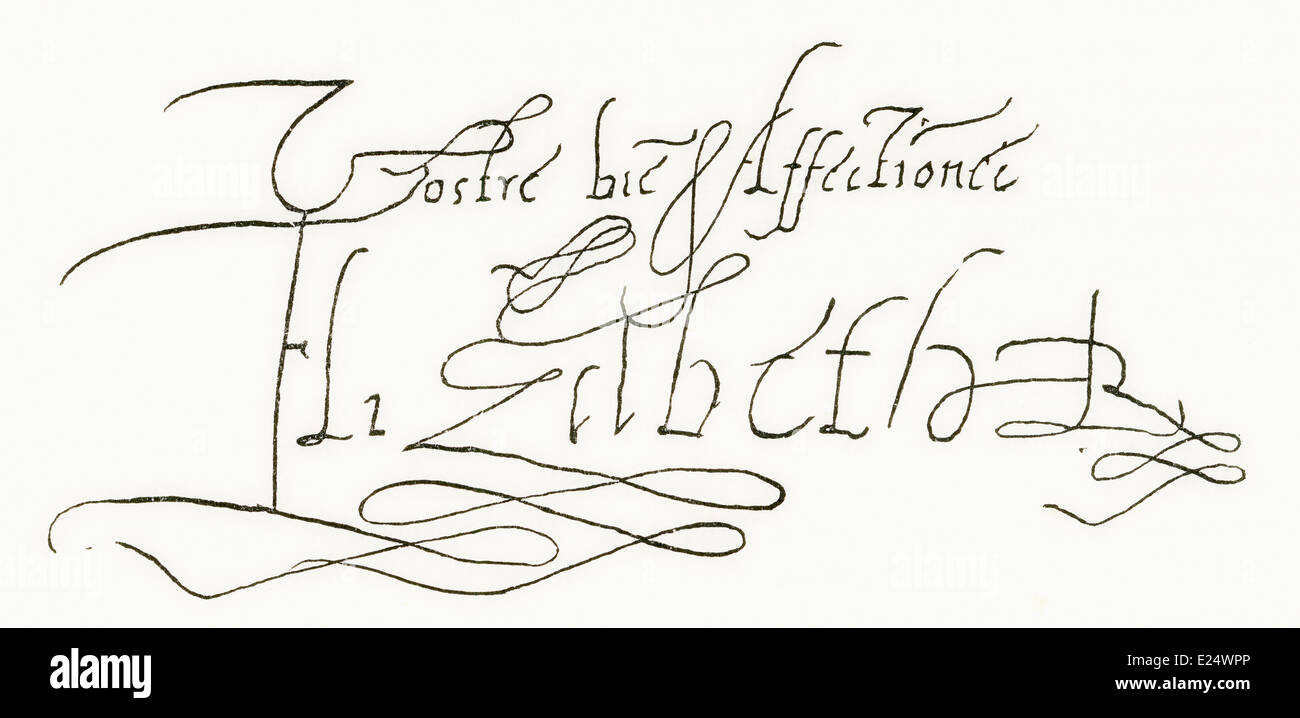 Vostre biē Affectionéé
Elizabeth R
alamy
Image ID: E24WPP
www.alamy.com